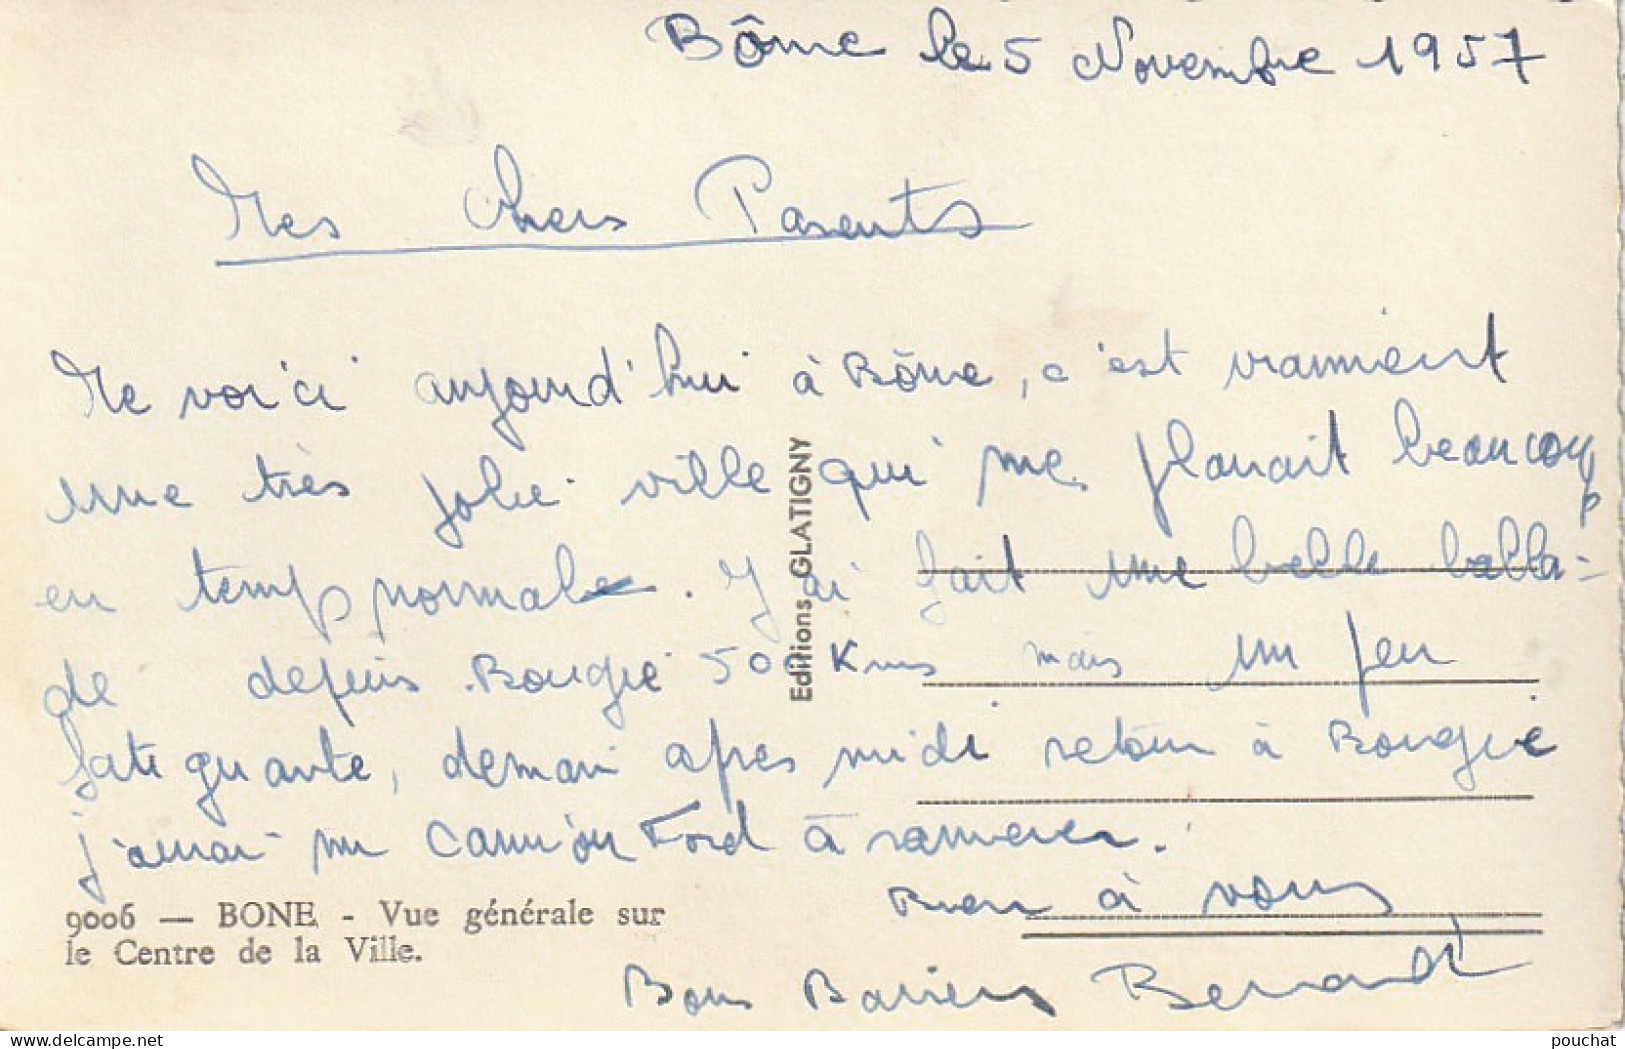 Bône le 5 Novembre 1957
Mes chers Parents
Me voici aujourd'hui à Bône, c'est vraiment
une très jolie ville qui me plairait beaucoup
en temps normale. J'ai fait une belle balla-
de depuis Bougie 500 Kms mais un peu
fatiguante, demain après midi retour à Bougie
j'aurai un camion Ford à ramener.
Bien à vous
Bons Baisers Bernard
9006 — BONE - Vue générale sur
le Centre de la Ville.
Editions GLATIGNY
delcampe.net
pouchat